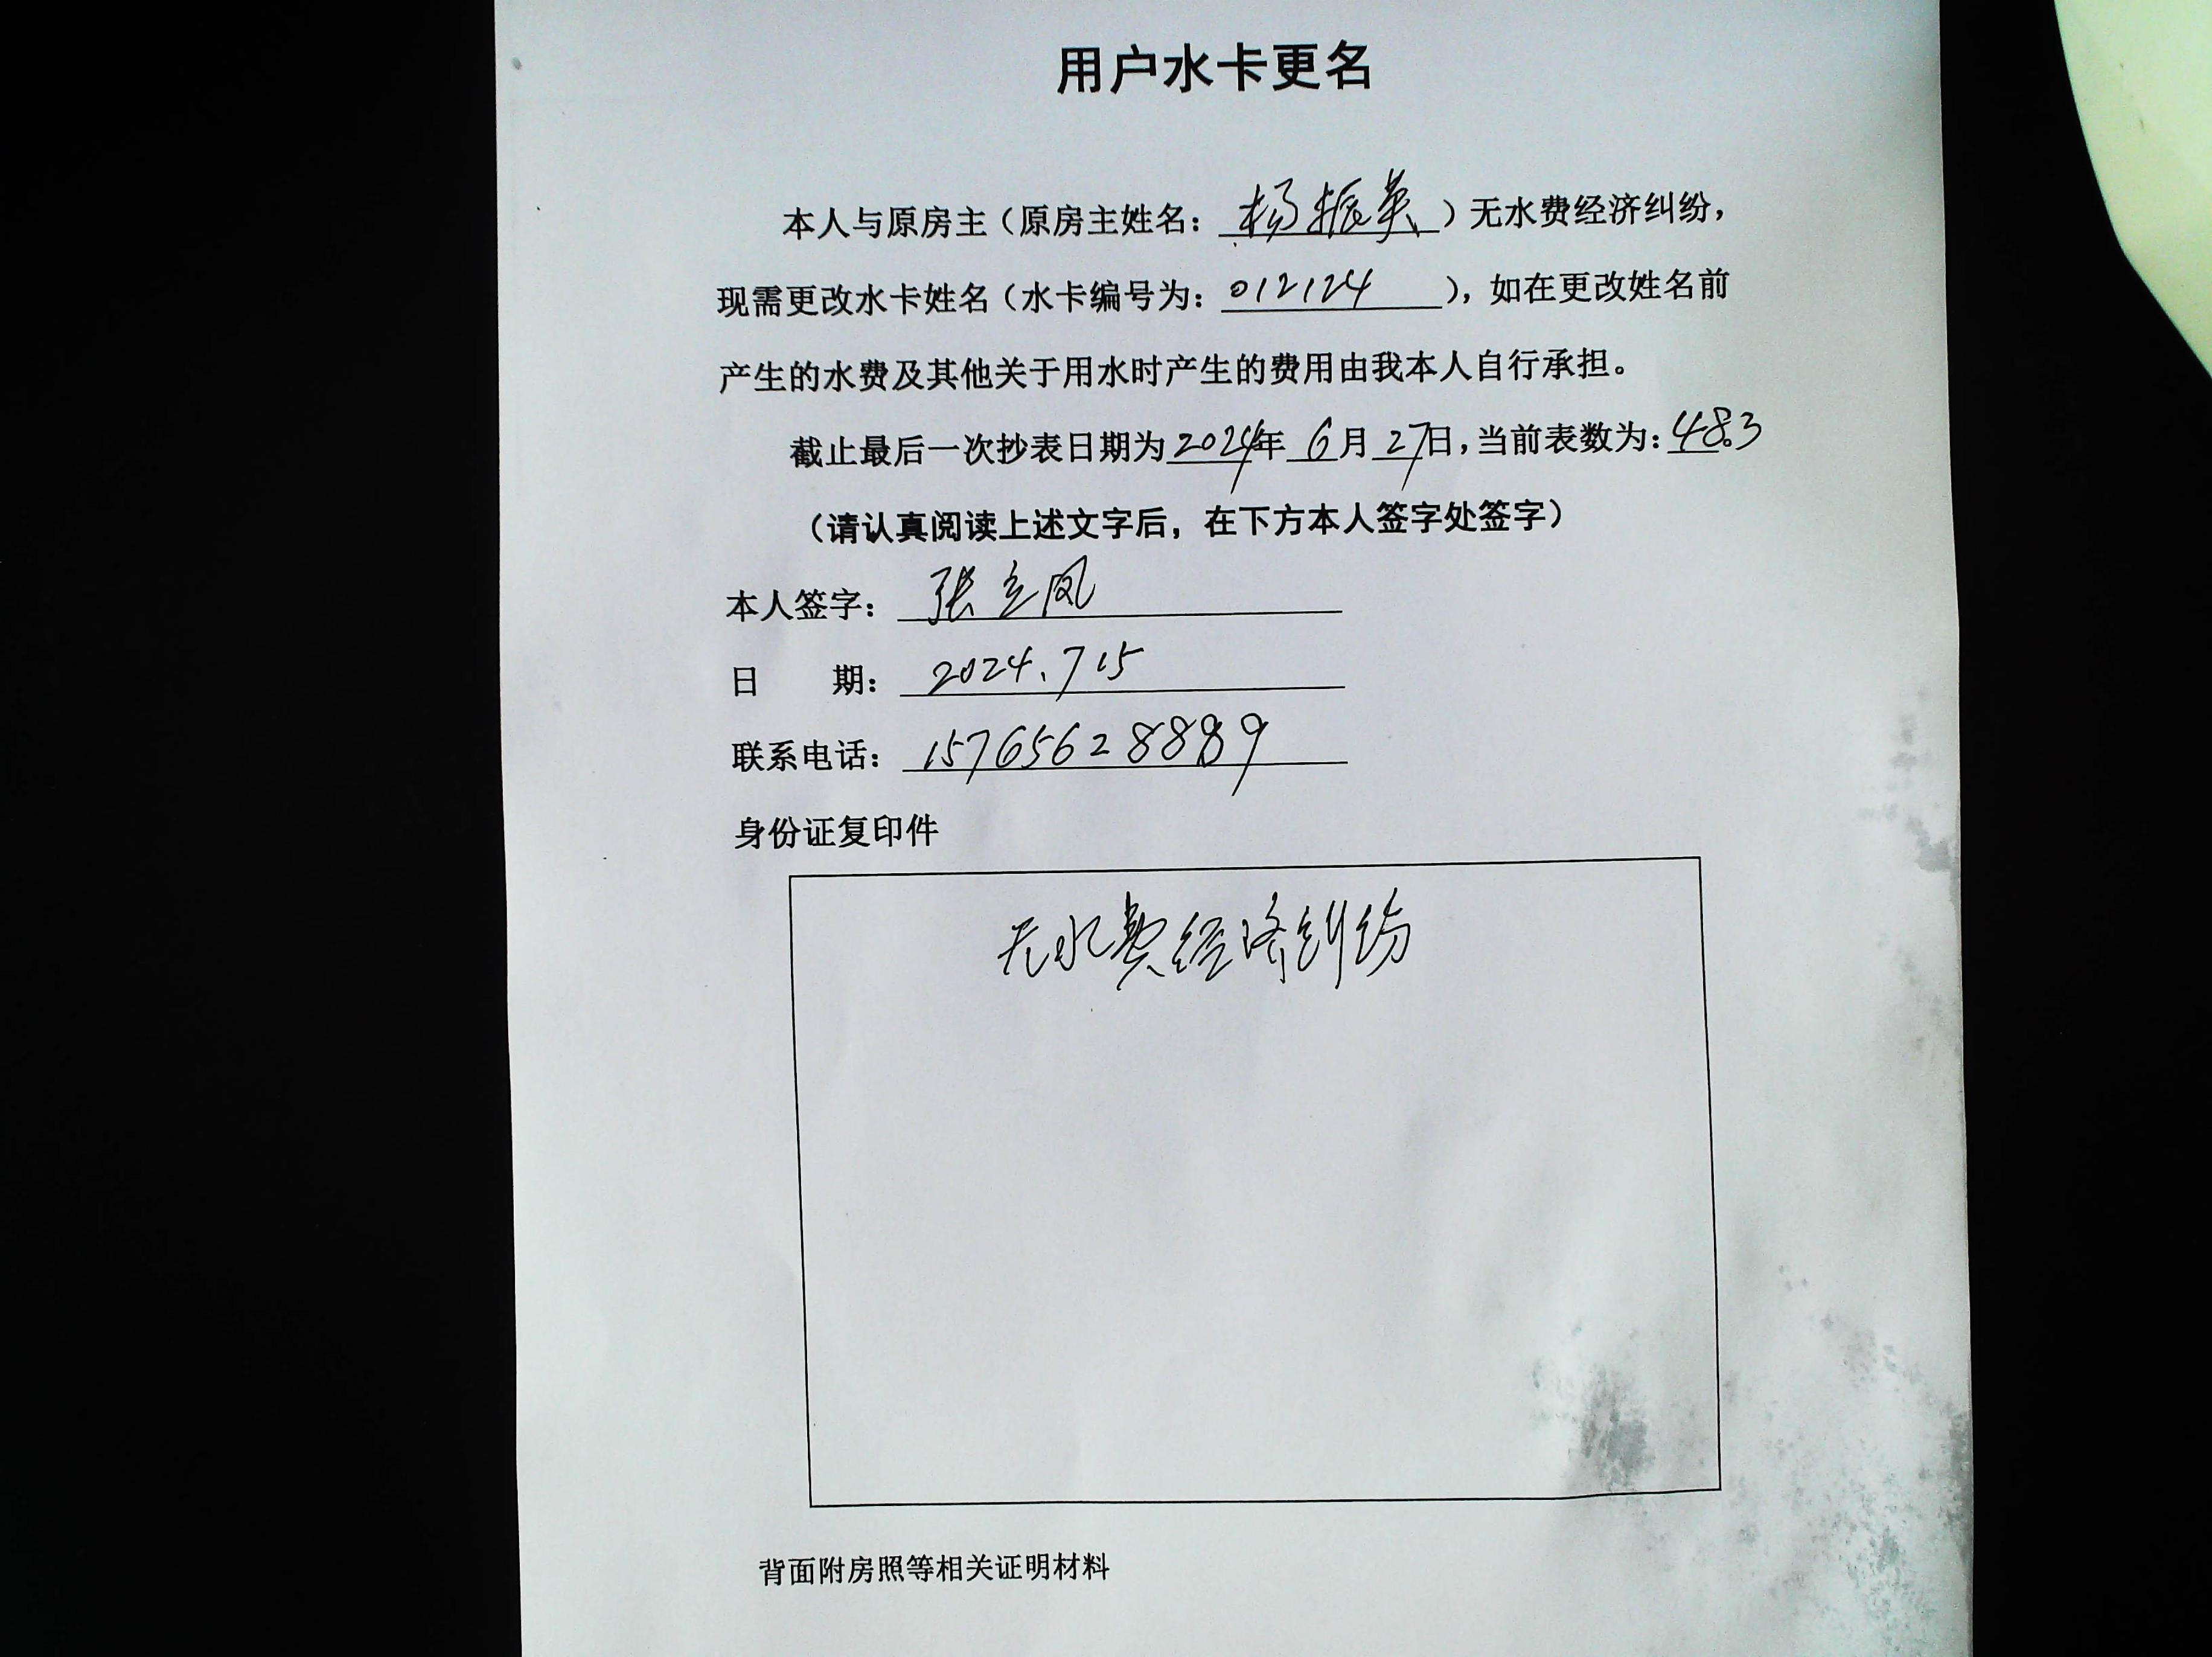 用户水卡更名
本人与原房主（原房主姓名：杨振英）无水费经济纠纷，
现需更改水卡姓名（水卡编号为：012124），如在更改姓名前
产生的水费及其他关于用水时产生的费用由我本人自行承担。
截止最后一次抄表日期为2024年6月27日，当前表数为：483
（请认真阅读上述文字后，在下方本人签字处签字）
本人签字：张立凤
日 期：2024.7 15
联系电话：15765628889
身份证复印件
无水费经济纠纷
背面附房照等相关证明材料